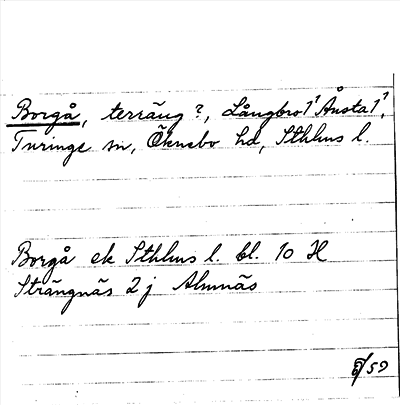 Borgå, terräng?, Långbro 1¹ Ånsta 1¹,
Turinge sn, Öknebo hd, Sthlms l.
Borgå ek Sthlms l. bl. 10 H
Strängnäs 2 j Almnäs
/59